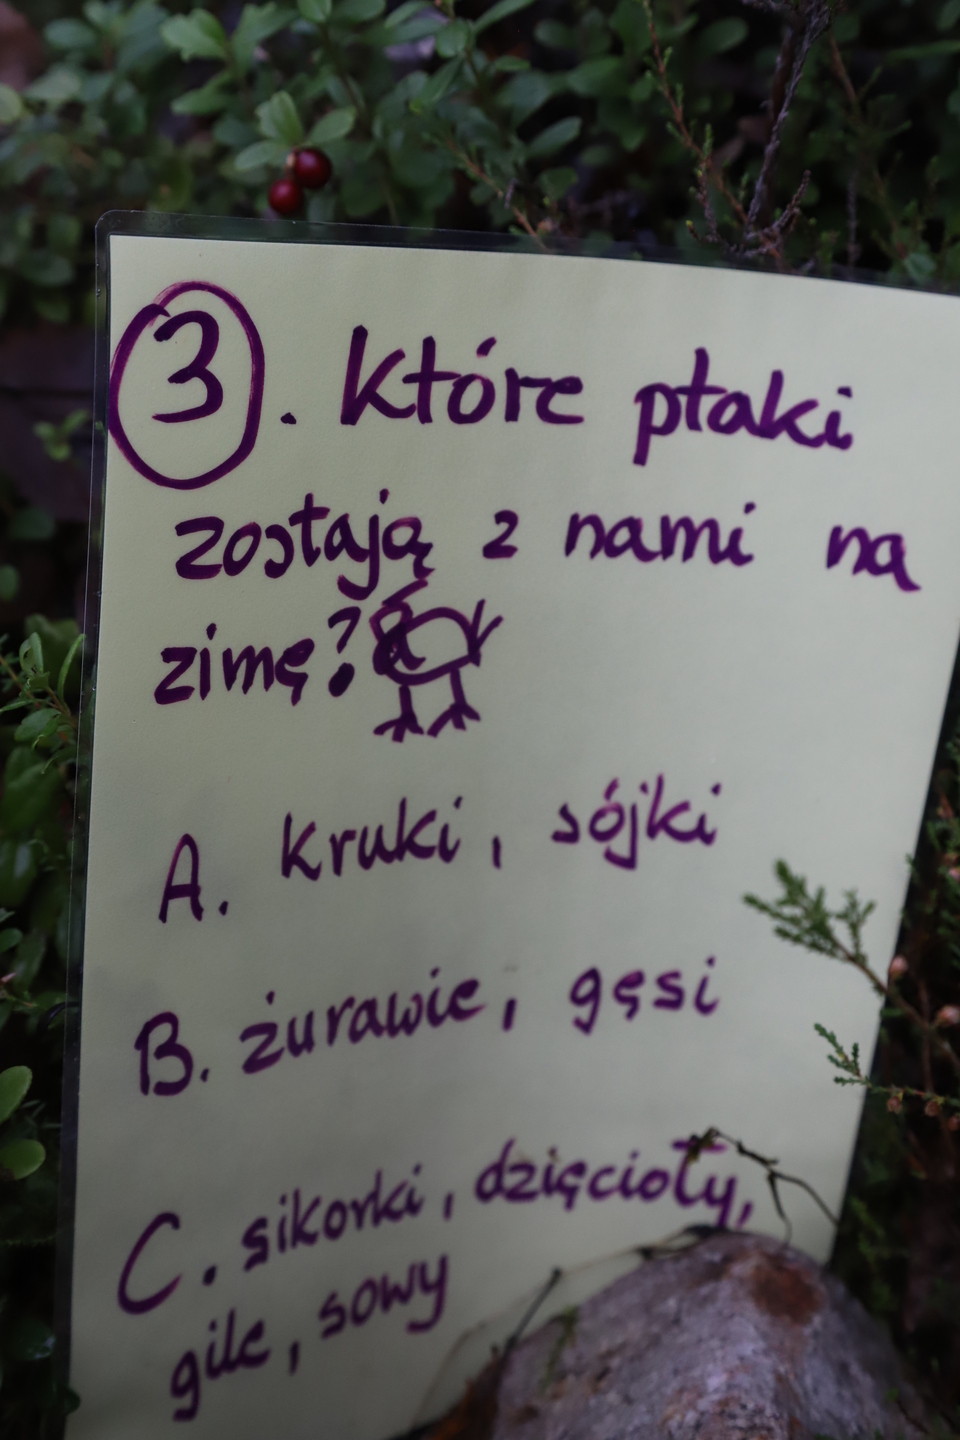 3. Które ptaki
zostają z nami na
zimę?
A. kruki, sójki
B. żurawie, gęsi
C. sikorki, dzięcioły,
gile, sowy